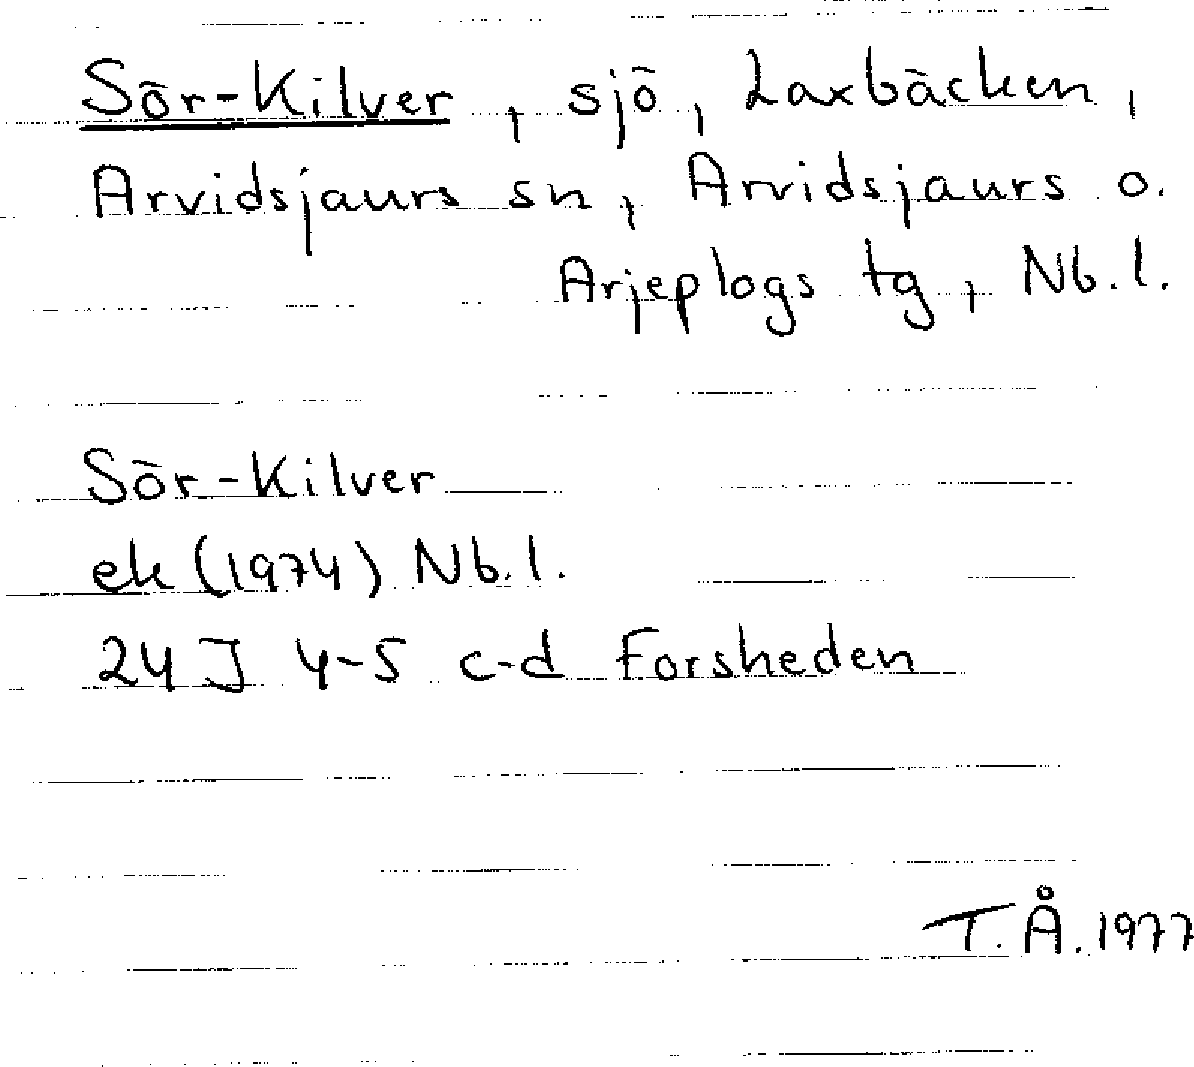 Sör-Kilver, sjö, Laxbäcken,
Arvidsjaurs sn, Arvidsjaurs o.
Arjeplogs tg, Nb.l.
Sör-Kilver
ek (1974) Nb.l.
24 J 4-5 c-d Forsheden
T.Å. 1977